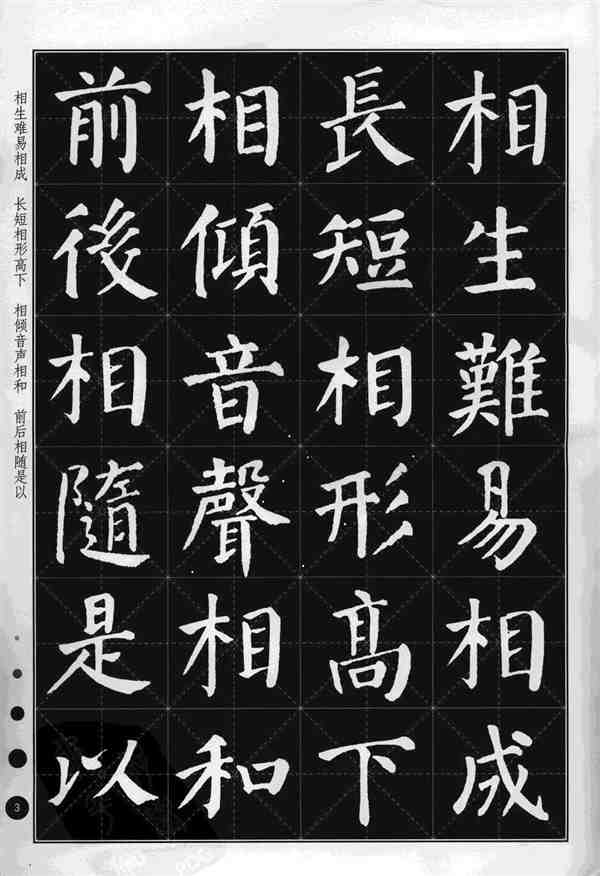 相生難易相成
長短相形高下
相傾音聲相和
前後相隨是以
相生难易相成 长短相形高下 相倾音声相和 前后相随是以
3